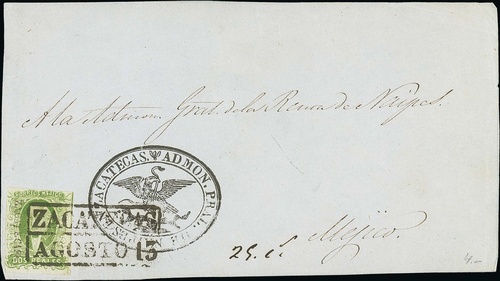 A la Admon. Gral. de la Renta de Naipes.
ZACATECAS. ADMON. PRAL. DE
CORREOS MEJICO
ZACATECAS
AGOSTO 15
DOS REALES
Mejico.
4.-